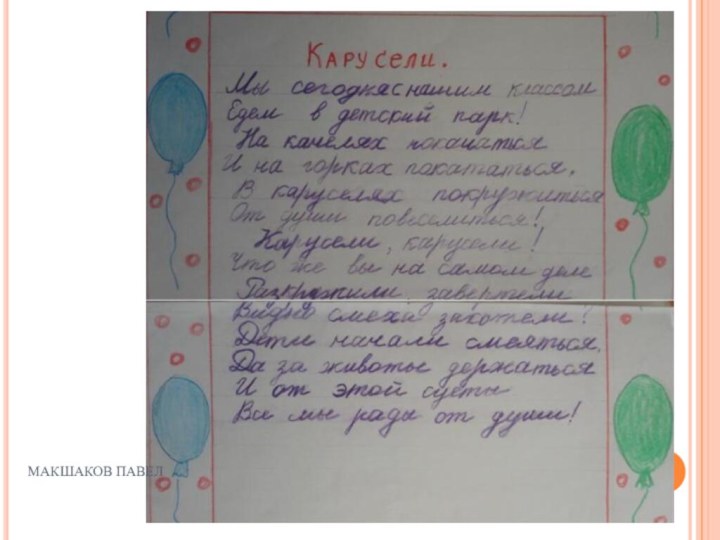 Карусели.
Мы сегодня с нашим классом
Едем в детский парк!
На качелях покачаться
И на горках покататься.
В каруселях покружиться
От души повеселиться!
Карусели, карусели!
Что же вы на самом деле
Раскружили, завертели
смеха захотели!
Дети начали смеяться,
Да за животы держаться
И от этой суеты
Все мы рады от души!
МАКШАКОВ ПАВЕЛ